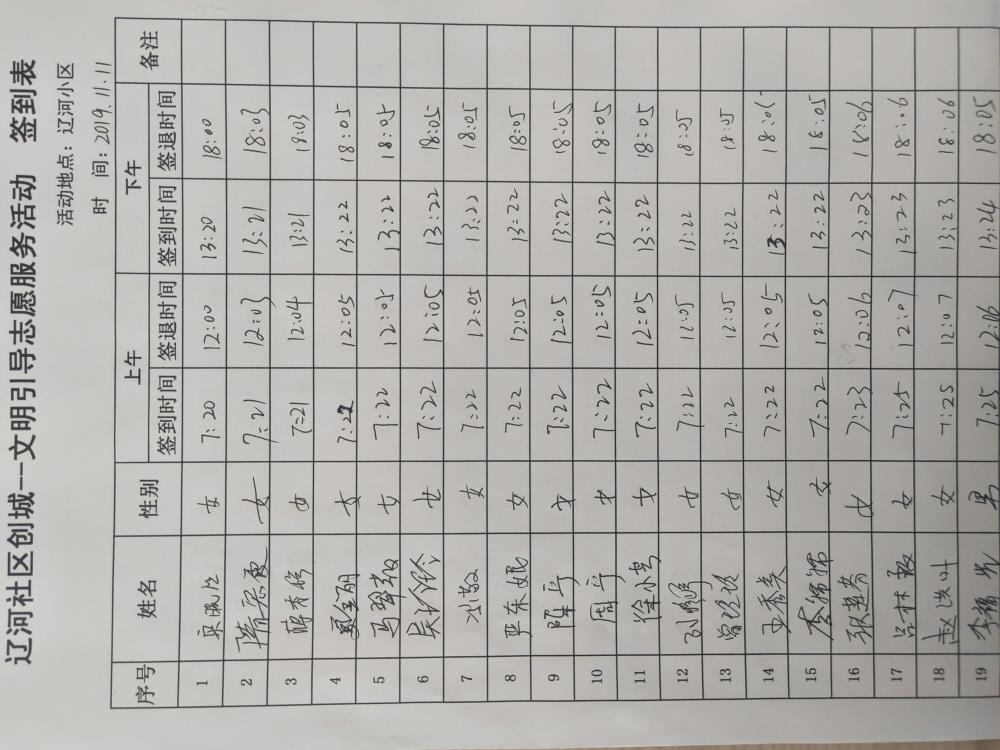 辽河社区创城--文明引导志愿服务活动 签到表
活动地点：辽河小区
时 间：2019.11.11
序号 姓名 性别 上午 下午 备注
签到时间 签退时间 签到时间 签退时间
1 女 7:20 12:00 13:20 18:00
2 女 7:21 12:03 13:21 18:03
3 女 7:21 12:04 13:21 18:03
4 女 7:22 12:05 13:22 18:05
5 马翠敏 女 7:22 12:05 13:22 18:05
6 女 7:22 12:05 13:22 18:05
7 刘敬 女 7:22 12:05 13:22 18:05
8 严东娥 女 7:22 12:05 13:22 18:05
9 陈平 女 7:22 12:05 13:22 18:05
10 周平 女 7:22 12:05 13:22 18:05
11 徐小雪 女 7:22 12:05 13:22 18:05
12 女 7:22 12:05 13:22 18:05
13 女 7:22 12:05 13:22 18:05
14 王秀英 女 7:22 12:05 13:22
15 女 7:22 12:05 13:22 18:05
16 张楚芳 女 7:23 12:06 13:23 18:06
17 吕林敏 女 7:25 12:07 13:23 18:06
18 赵洪叶 女 7:25 12:07 13:23 18:06
19 男 7:25 12:06 13:24 18:05